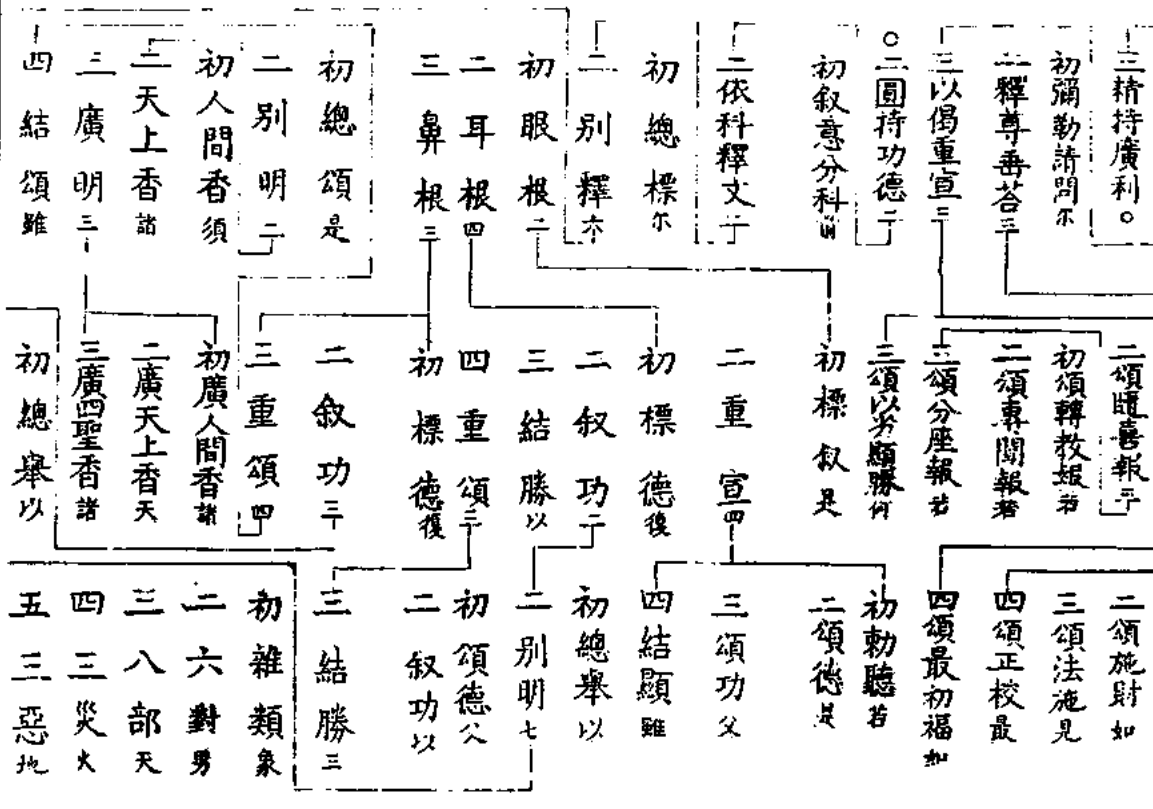 三精持廣利○
初彌勒請問尒
二釋尊垂荅三
三以偈重宣三
○二圓持功德二
初叙意分科前
二依科釋文二
初總標尓
二別釋六
初眼根二
二耳根四
三鼻根三
初總頌是
二別明二
初人間香須
二天上香諸
三廣明三
四結頌雖
二頌隨喜報三
初頌轉教報若
二頌專聞報若
三頌分座報若
三頌以劣顯勝何
初標叙是
二重宣四
初標德復
二叙功二
三結勝以
四重頌三
初標德復
二叙功三
三重頌四
初廣人間香諸
二廣天上香天
三廣四聖香諸
初總舉以
二頌施財如
三頌法施見
四頌正校最
四頌最初福如
初勅聽若
二頌德是
三頌功父
四結顯雖
初總舉以
二別明七
初頌德父
二叙功以
三結勝三
初雜類象
二六對男
三八部天
四三災火
五三惡地